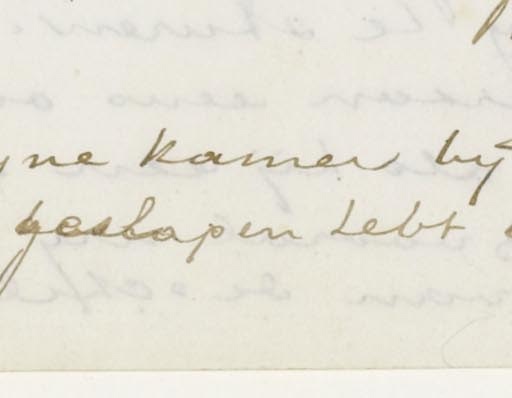 yne kamer by
geslapen hebt